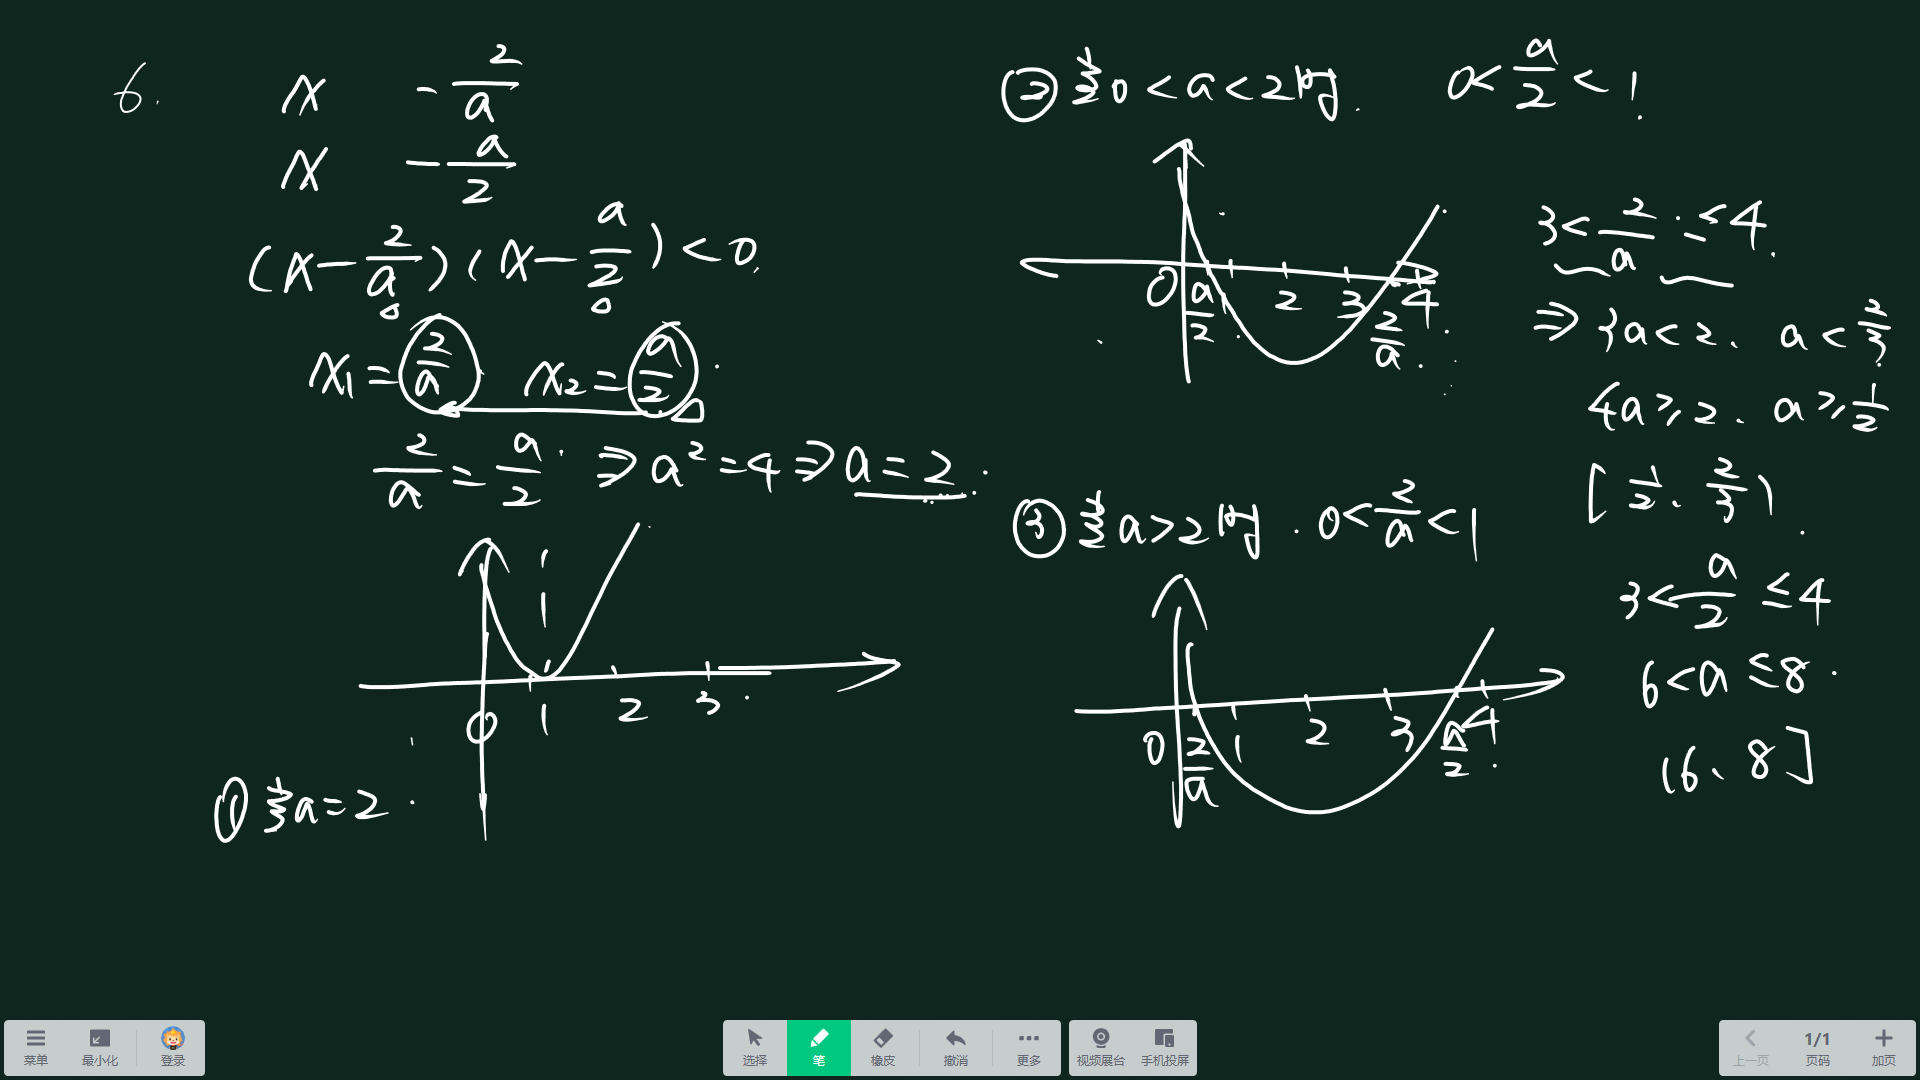 6.
x -2/a
x -a/2
(x-2/a)(x-a/2)<0
x₁=2/a x₂=a/2
2/a=a/2 ⇒a²=4⇒a=2
0 1 2 3
① 当a=2
② 当0<a<2时. 0<a/2<1
0 a/2 1 2 3 2/a 4
3<2/a≤4
⇒3a<2、a<2/3
4a≥2、a≥1/2
[1/2、2/3)
③ 当a>2时. 0<2/a<1
0 2/a 1 2 3 a/2 4
3<a/2≤4
6<a≤8
(6、8]
菜单 最小化 登录
选择 笔 橡皮 撤消 更多
视频展台 手机投屏
上一页 1/1 页码 加页